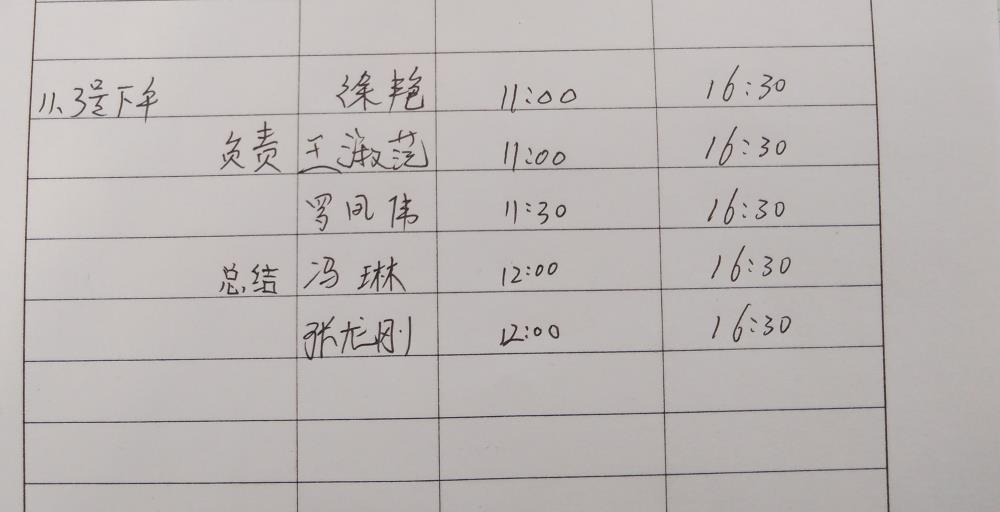 11.3号下午 徐艳 11:00 16:30
负责 王淑范 11:00 16:30
罗凤伟 11:30 16:30
总结 冯琳 12:00 16:30
张龙刚 12:00 16:30